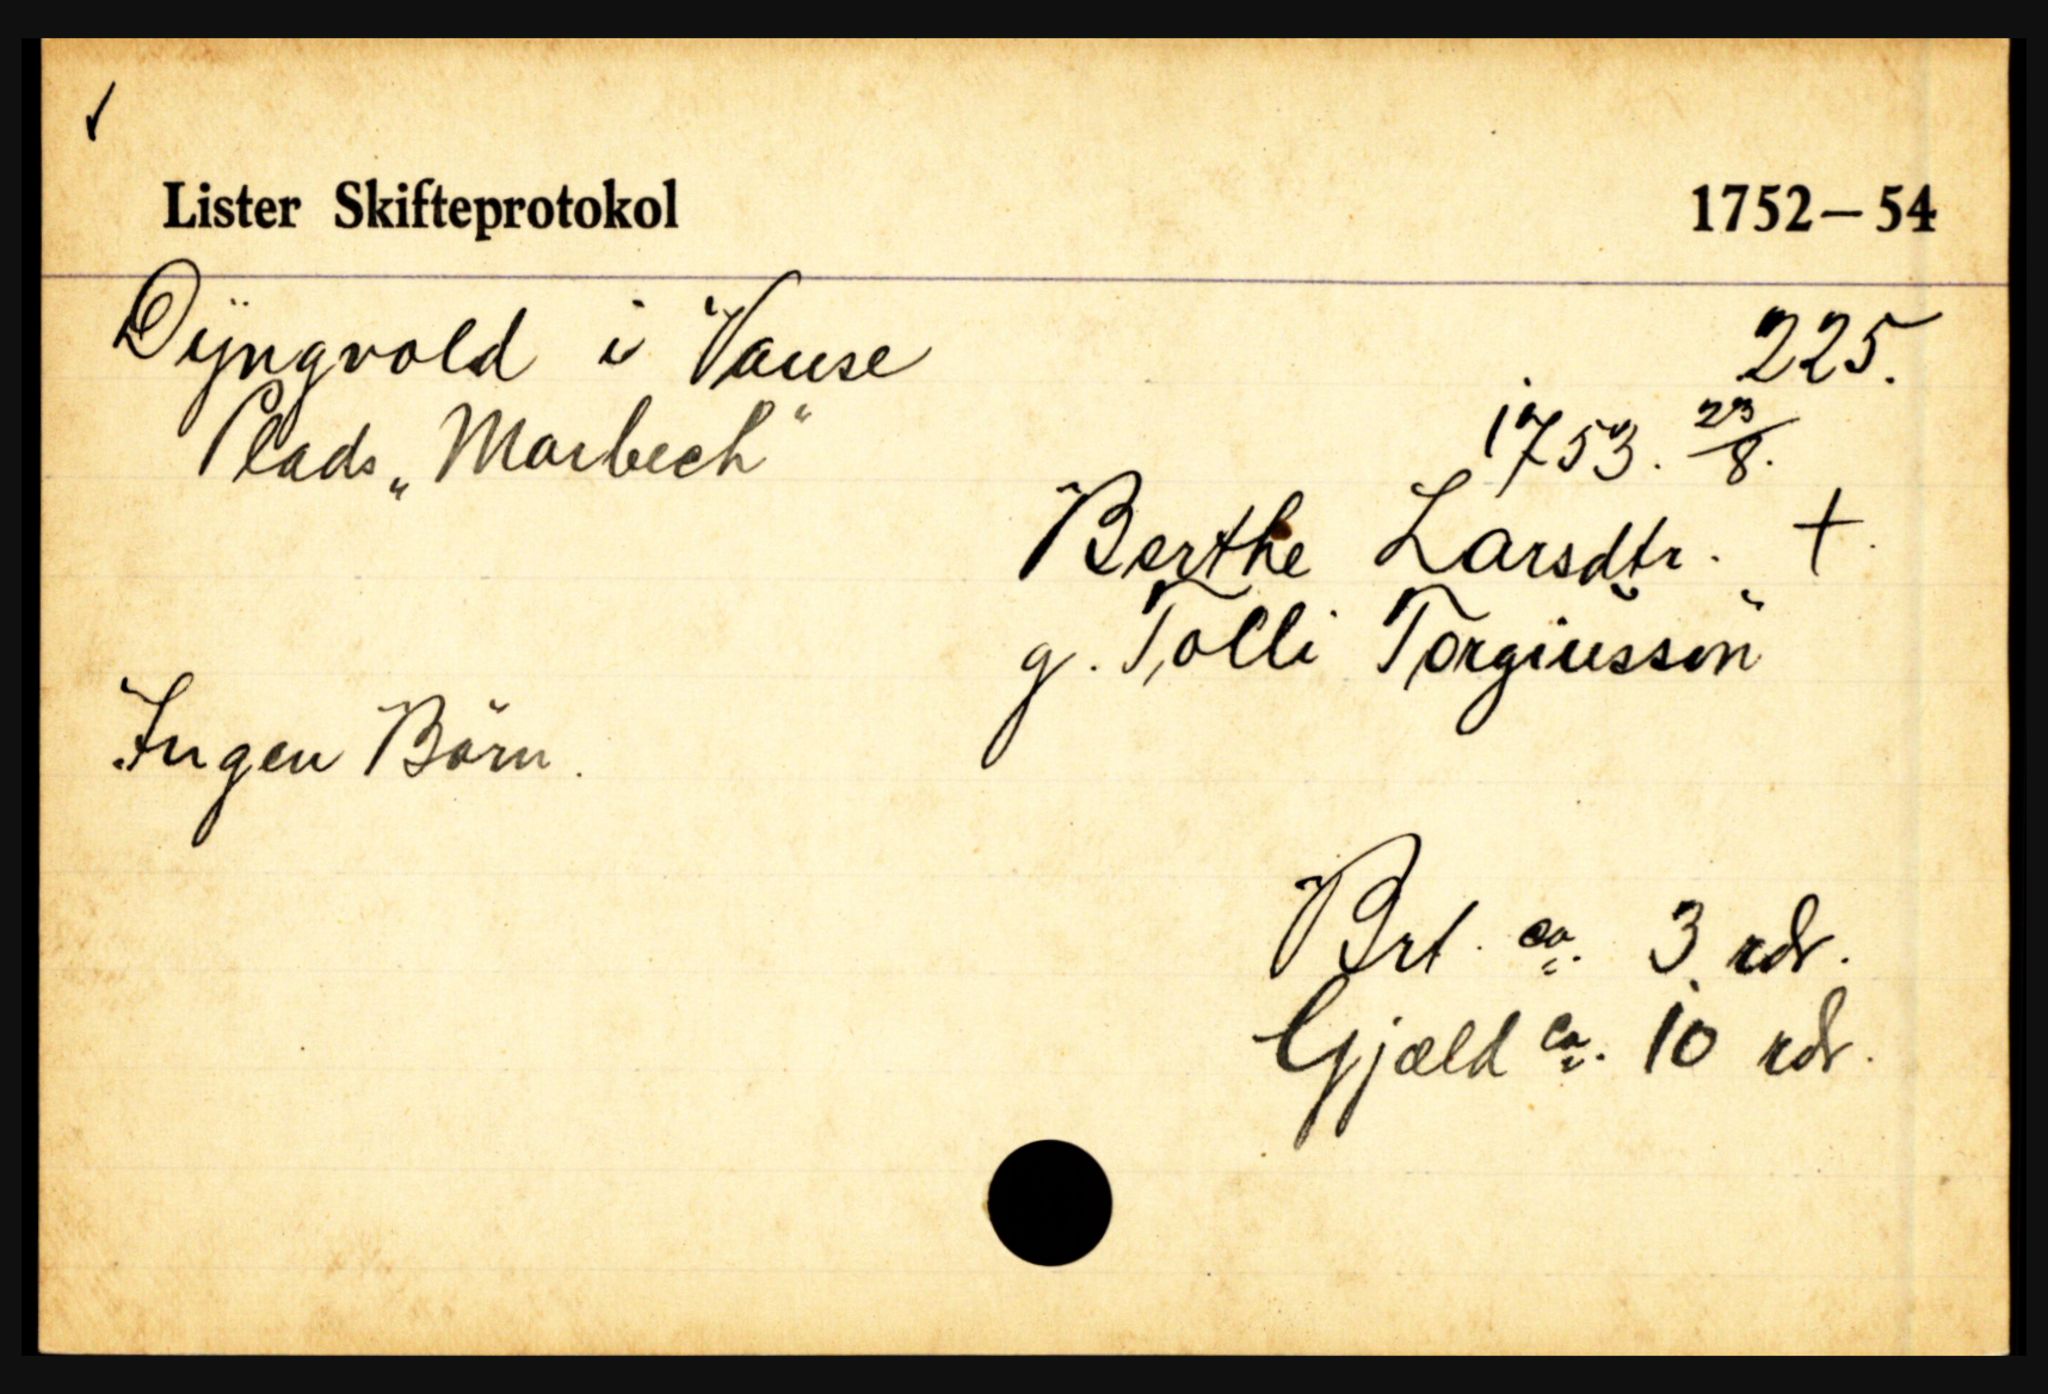 Lister Skifteprotokol 1752–54
Dÿngvold i Vanse 225.
Plads „Marbech"
1753. 23/8.
Berthe Larsdtr. +
g. Tolli Torgiusson
Ingen Börn.
Brt. ca. 3 rdr.
Gjæld ca. 10 rdr.